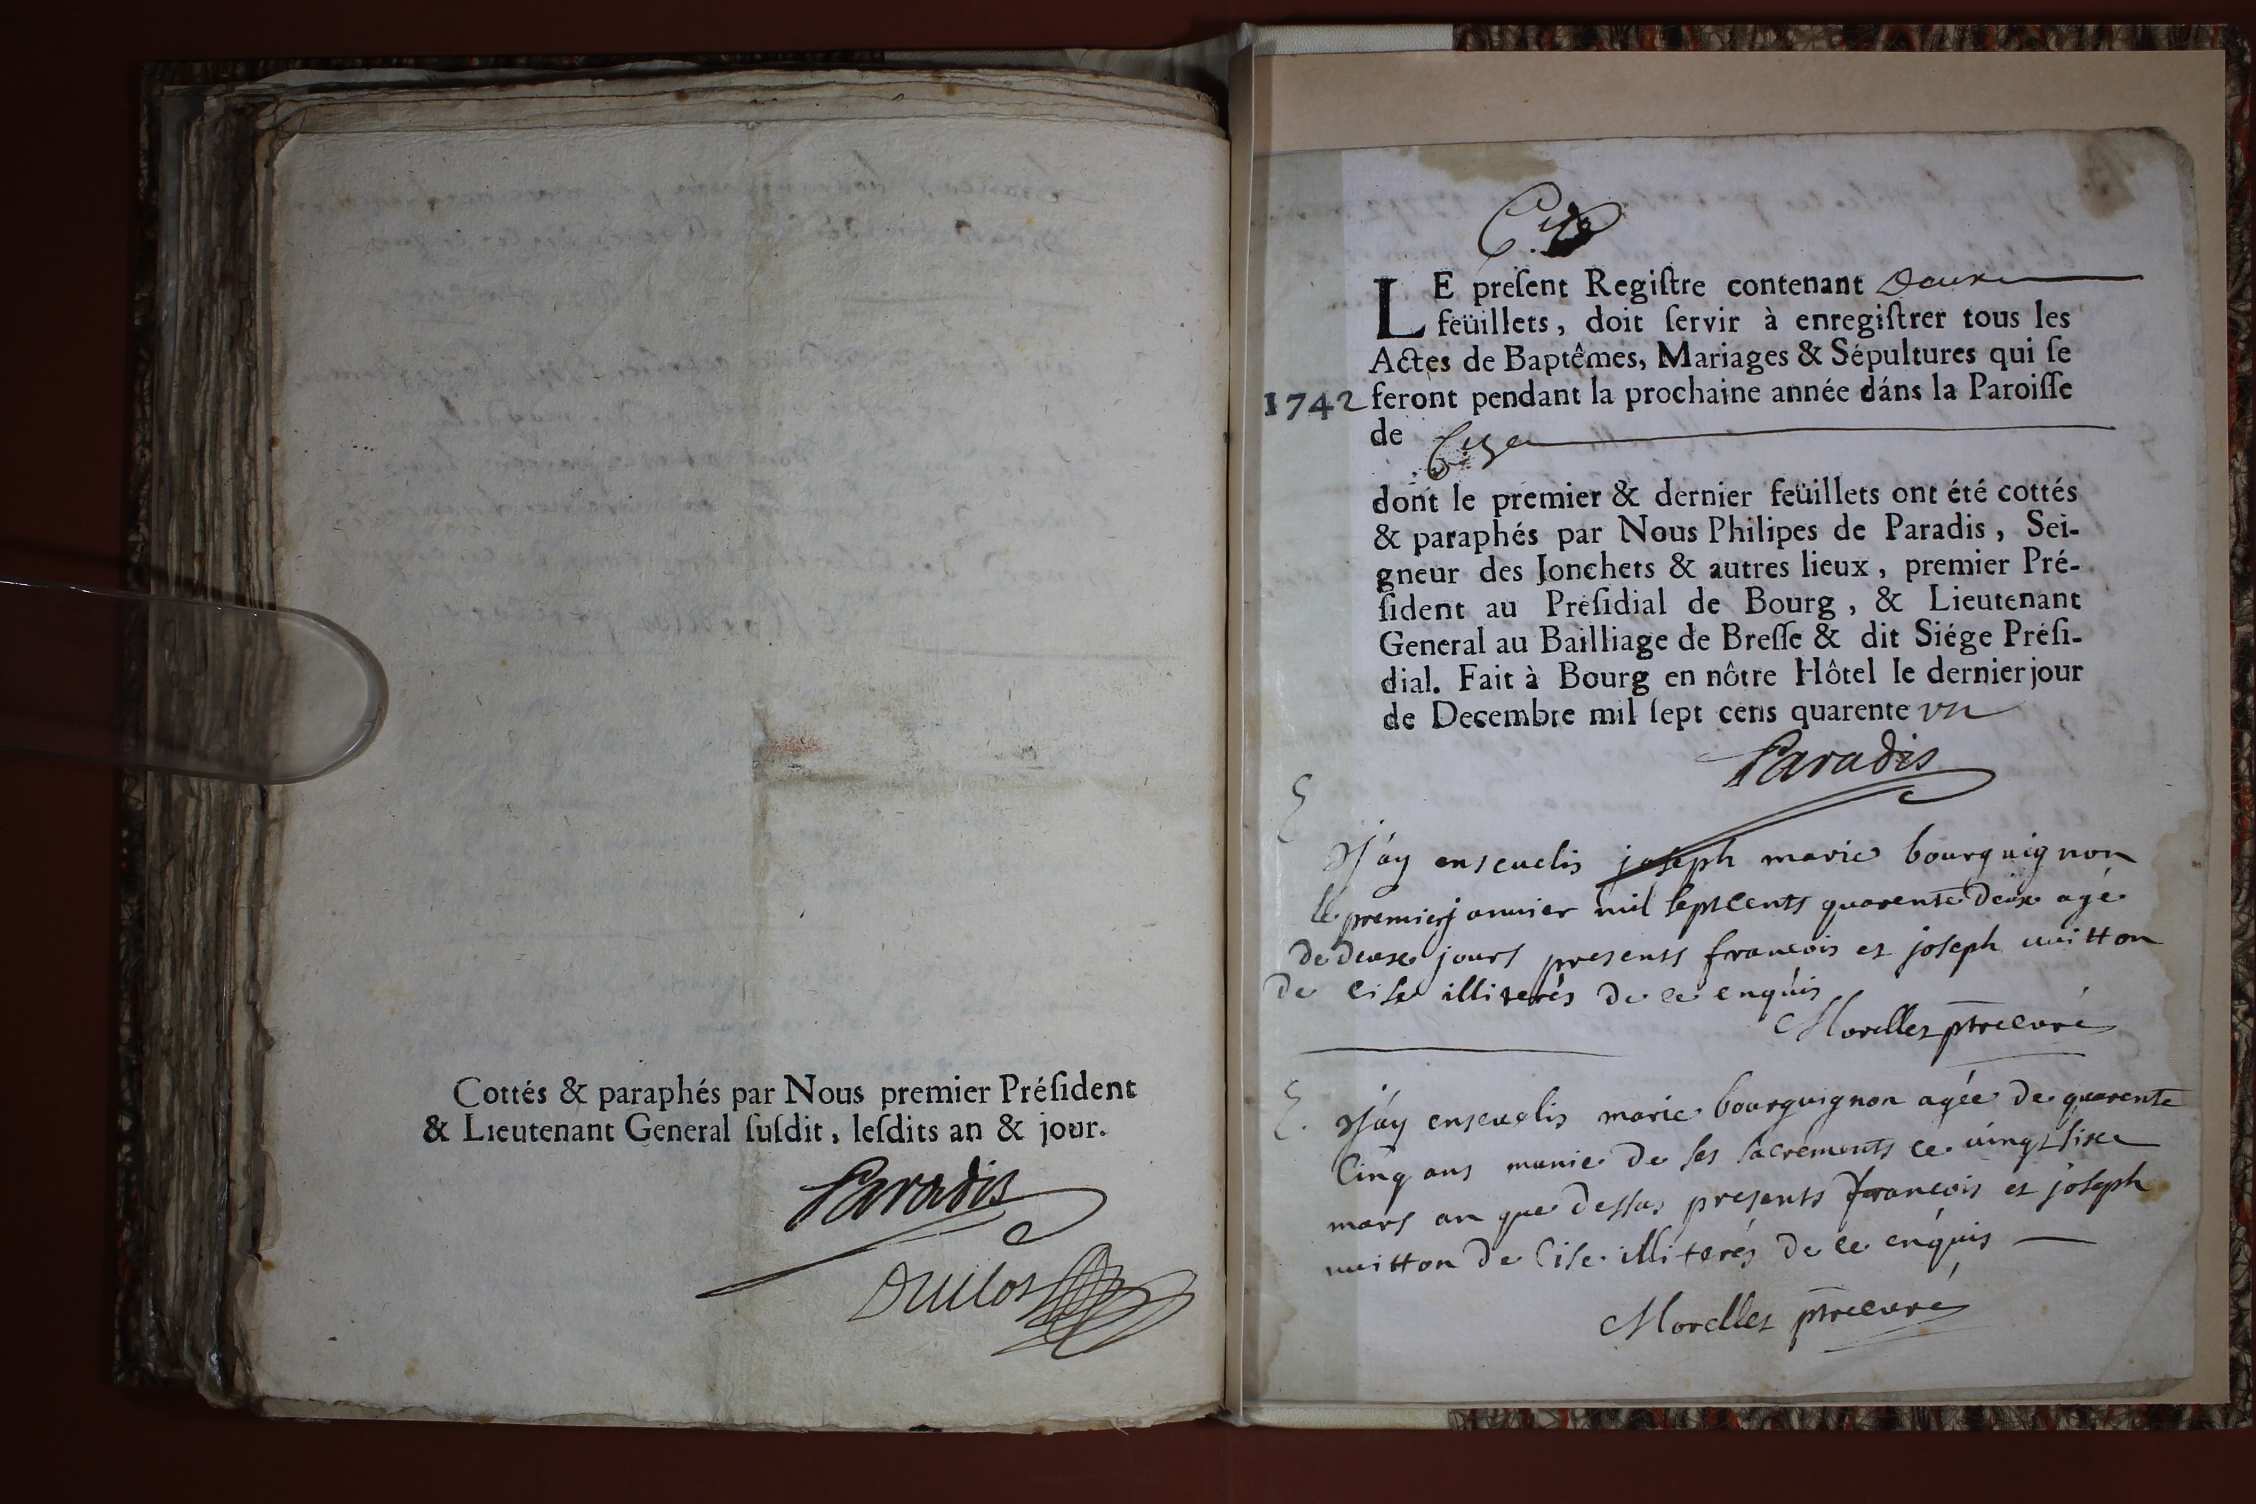 Cottés & paraphés par Nous premier Préſident
& Lieutenant General ſuſdit, leſdits an & jour.
Paradis
LE preſent Regiſtre contenant Deux
feüillets, doit ſervir à enregiſtrer tous les
Actes de Baptêmes, Mariages & Sépultures qui ſe
1742 feront pendant la prochaine année dáns la Paroiſſe
de Cize
dont le premier & dernier feüillets ont été cottés
& paraphés par Nous Philipes de Paradis, Sei-
gneur des Jonchets & autres lieux, premier Pré-
ſident au Préſidial de Bourg, & Lieutenant
General au Bailliage de Breſſe & dit Siége Préſi-
dial. Fait à Bourg en nôtre Hôtel le dernier jour
de Decembre mil ſept cens quarente vn
Paradis
J'ay enseuelis joseph marie bourguignon
le premier janvier mil septcents quarente deux agé
de deux jours presents francois et joseph vuitton
de Cise illiterés de ce enquis
Morellet ptre curé
J'ay enseuelis marie bourguignon agée de quarente
cinq ans munie de ses sacrements ce vingt six
mars an que dessus presents francois et joseph
vuitton de Cise illiterés de ce enquis
Morellet ptre curé